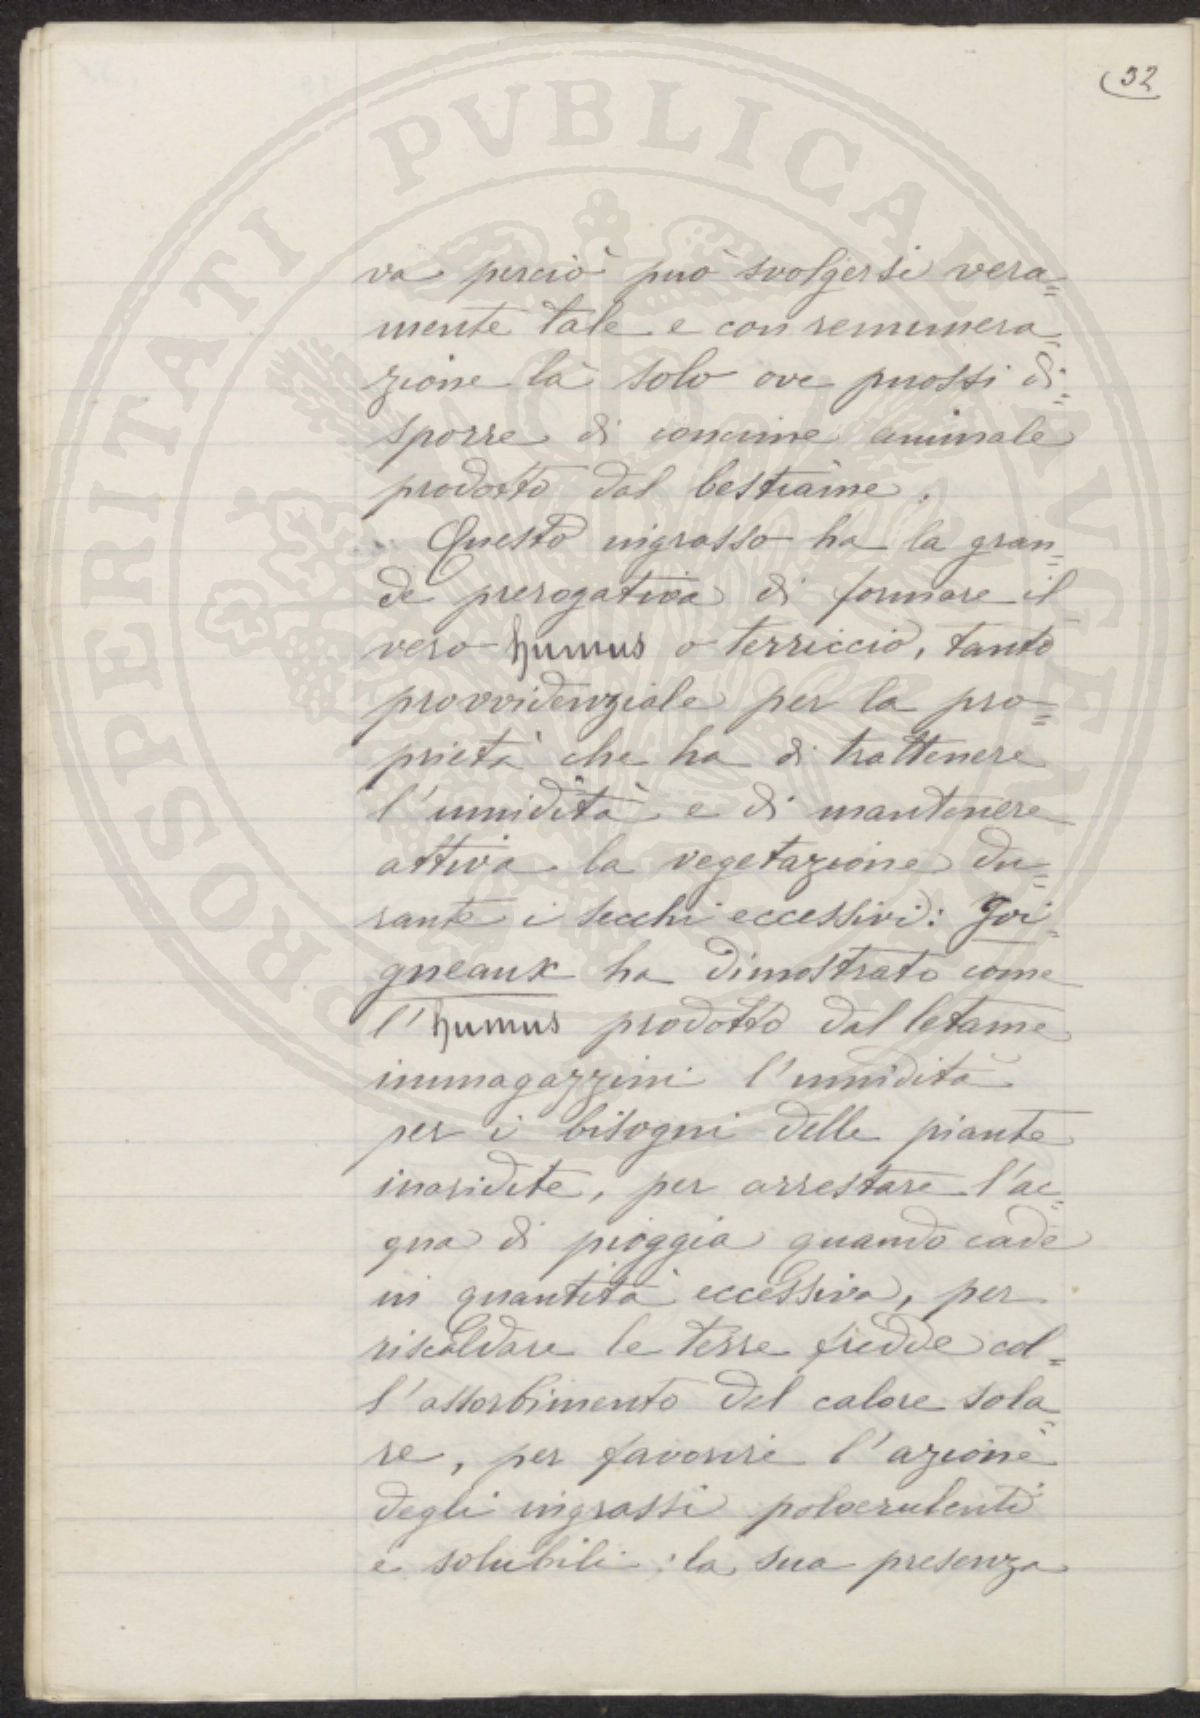 32
va perciò può svolgersi vera=
mente tale e con remunera=
zione là solo ove puossi di=
sporre di concime animale
prodotto dal bestiame.
Questo ingrasso ha la gran=
de prerogativa di formare il
vero humus o terriccio, tanto
provvidenziale per la pro=
prietà che ha di trattenere
l'umidità e di mantenere
attiva la vegetazione du=
rante i secchi eccessivi: Joi=
gneaux ha dimostrato come
l'humus prodotto dal letame
immagazzini l'umidità
per i bisogni delle piante
inaridite, per arrestare l'ac=
qua di pioggia quando cade
in quantità eccessiva, per
riscaldare le terre fredde col=
l'assorbimento del calore sola=
re, per favorire l'azione
degli ingrassi polverulenti
e solubili: la sua presenza
PROSPERITATI PVBLICAE AVGENDAE